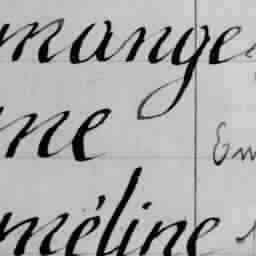 mange
me
méline
Em